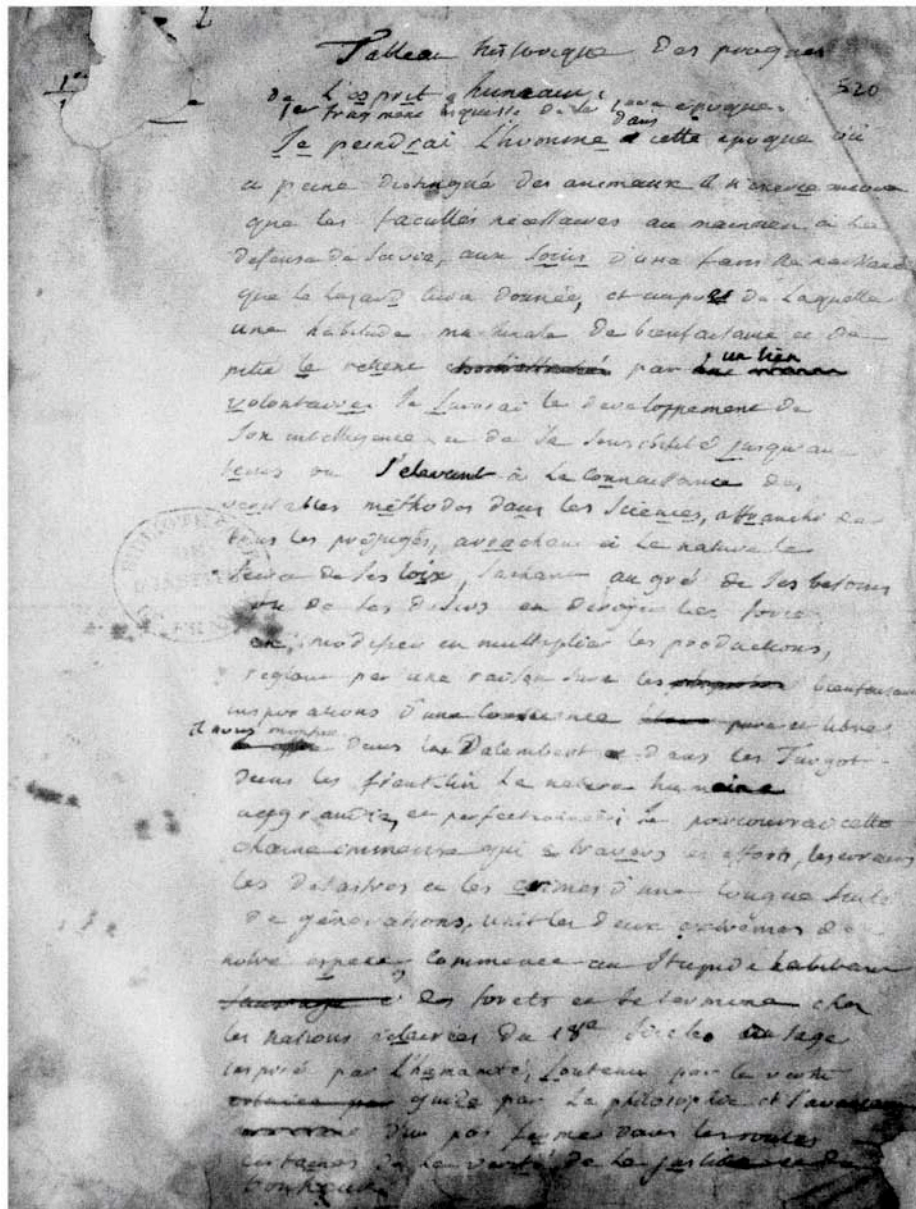 Tableau historique des progres
520
de l'esprit humain
1er fragment esquisse de la 1ere epoque.
dans
Je peindrai l'homme a cette epoque ou
a peine distingué des animaux il n'exerce encore
que les facultés necessaires au maintien a la
defense de sa vie, aux soins d'une famille
que le hazard lui a donnée, et aupres de laquelle
une habitude machinale de bienfaisance et de
pitié le retient par un lien
volontaire. Je suivrai le developpement de
son intelligence et de sa sensibilité jusqu'au
tems ou s'elevant à la connaissance des
veritables méthodes dans les sciences, affranchi de
tous les préjugés, arrachant à la nature le
secret de ses loix, sachant au gré de ses besoins
ou de ses desirs en diriger les forces
en modifier en multiplier les productions,
reglant par une raison sure les bienfaisantes
inspirations d'une conscience pure et libre
il nous montre
dans les Dalembert dans les Turgot
dans les franklin la nature humaine
aggrandie, et perfectionnée; je parcourrai cette
chaine immense qui a travers les efforts, les erreurs
les désastres et les crimes d'une longue suite
de générations, unit les deux extrêmes de
notre espece, commence au stupide habitant
sauvage des forets et se termine chez
les nations éclairées du 18e siecle au sage
inspiré par l'humanité, soutenu par la verité
guidé par la philosophie et s'avançant
d'un pas ferme dans les routes
certaines de la verité de la justice et du
bonheur.